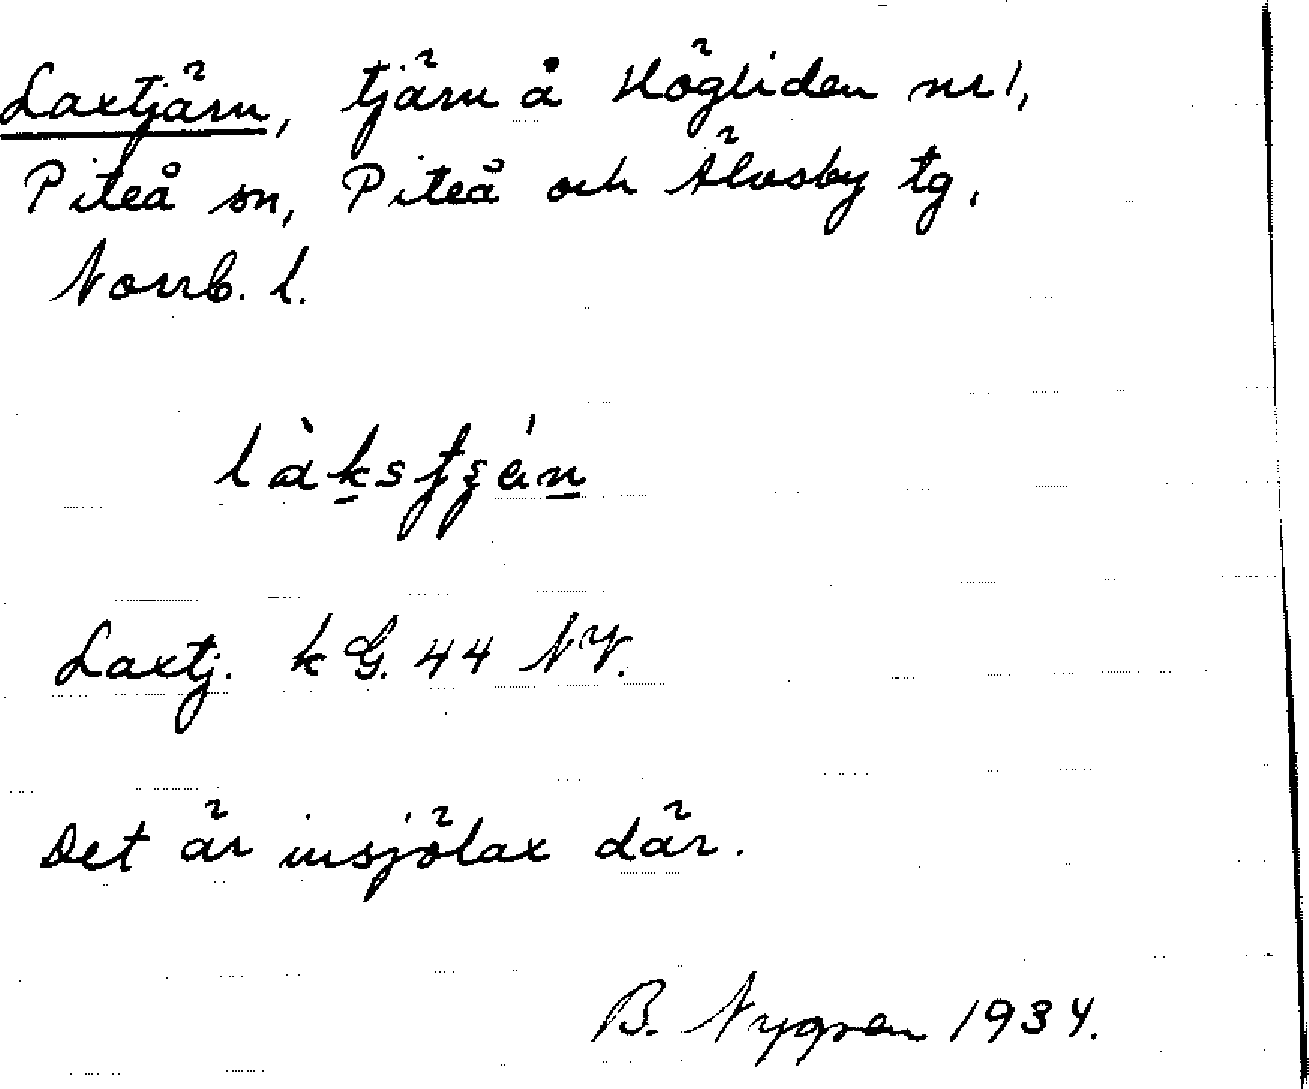 Laxtjärn, tjärn å Högliden nr 1,
Piteå sn, Piteå och Älvsby tg.
Norrb. l.
Laxtj. kG. 44 NV.
Det är insjölax där.
B. Nygren 1934.